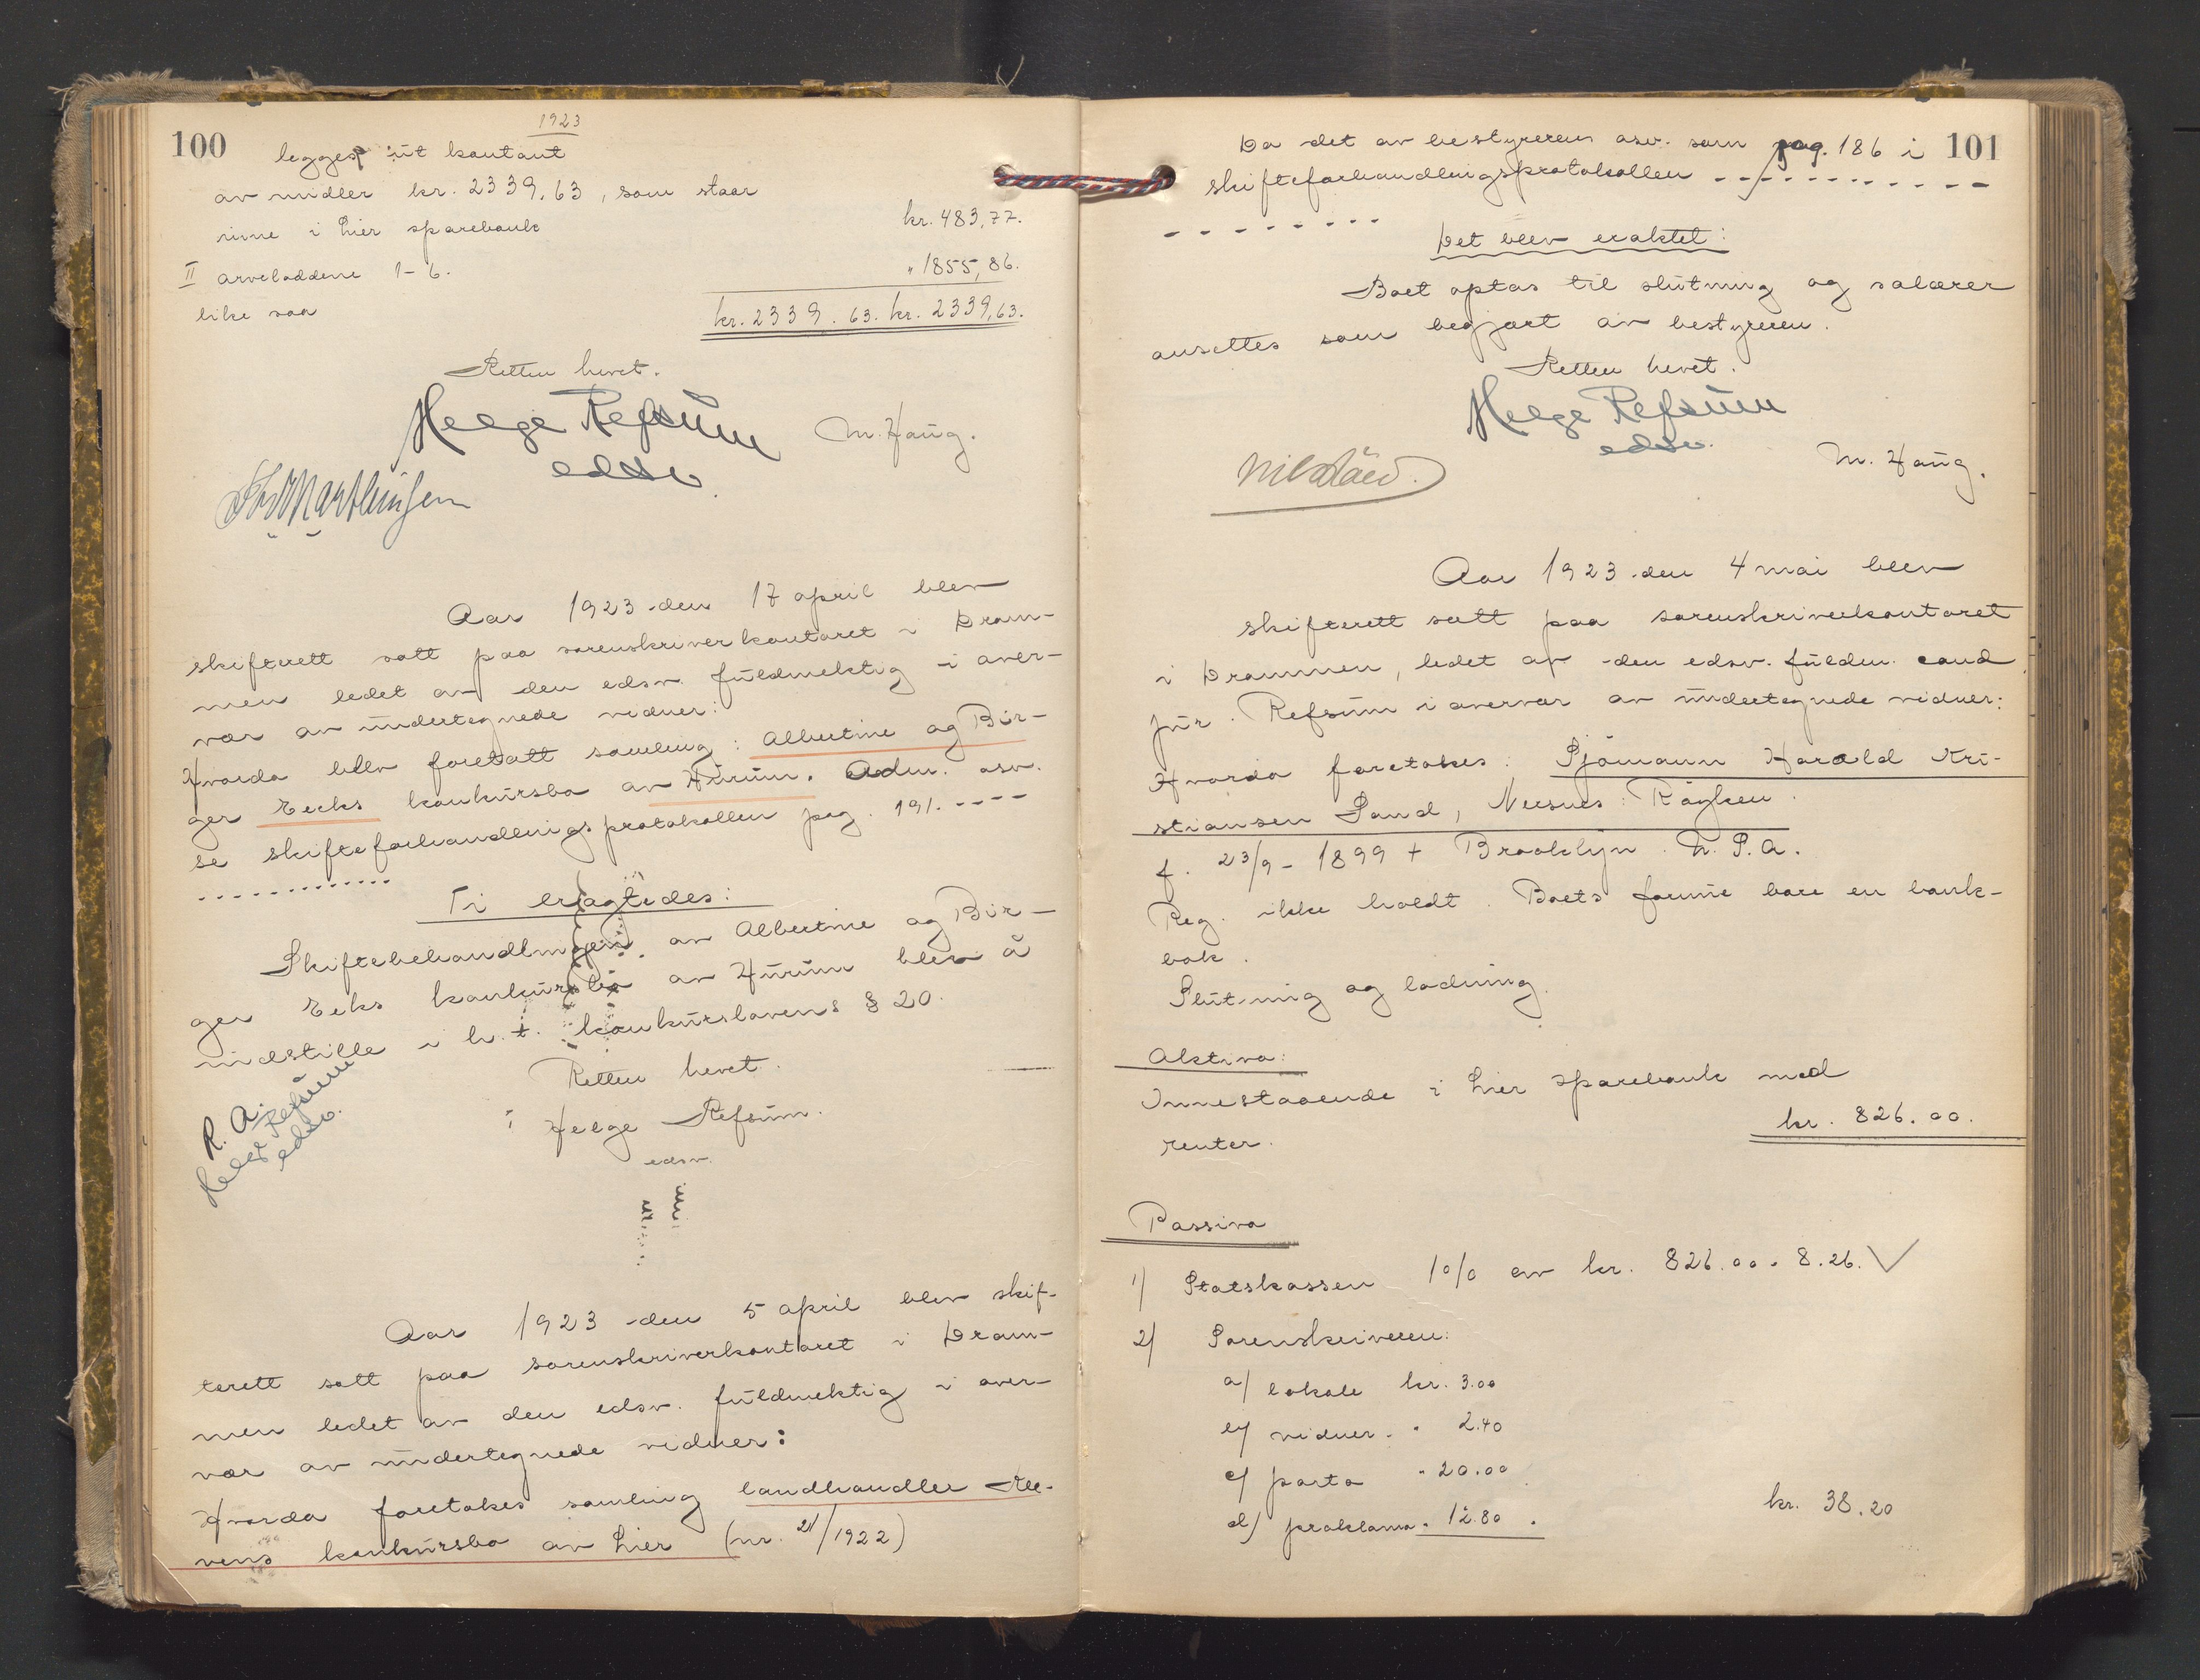 100
1923
legges ut kontant
av midler kr. 2339,63, som staar
inne i Lier sparebank kr. 483,77.
II arveloddene 1-6. " 1855,86.
like saa kr. 2339.63. kr. 2339,63.
Retten hevet.
Helge Refsum M. Haug.
edsv.
Aar 1923 den 17 april blev
skifterett satt paa sorenskriverkontoret i Dram-
men ledet av den edsv. fuldmektig i over-
vær av undertegnede vidner:
Hvorda blev foretatt samling: Albertine og Bir-
ger Eeks konkursbo av Hurum. Adm. osv.
se skifteforhandlingsprotokollen pag. 191. ----
-------------
Ti eragtedes:
Skiftebehandlingen av Albertine og Bir-
ger Eeks konkursbo av Hurum blev å
indstille i h. t. konkurslovens § 20.
Retten hevet.
Helge Refsum.
edsv.
R. A.
Helge Refsum
edsv.
Aar 1923 den 5 april blev skif-
terett satt paa sorenskriverkontoret i Dram-
men ledet av den edsv. fuldmektig i over-
vær av undertegnede vidner:
Hvorda foretokes samling landhandler Kle-
vens konkursbo av Lier (nr. 21/1922)
101
Da det av bestyreren osv. som pag. 186 i
skifteforhandlingsprotokollen -----------
--------
Det blev eraktet:
Boet optas til slutning og salærer
ansettes som begjært av bestyreren.
Retten hevet.
Helge Refsum
edsv. M. Haug.
Aar 1923 den 4 mai blev
skifterett satt paa sorenskriverkontoret
i Drammen, ledet av den edsv. fuldm. cand
jur. Refsum i overvær av undertegnede vidner:
Hvorda foretokes: Sjømann Harald Kri-
stiansen Sand, Nersnes: Røyken.
f. 23/9 - 1899 + Brooklyn U. S. A.
Reg. ikke holdt. Boets formue bare en bank-
bok.
Slutning og lodning.
Aktiva:
Innestaaende i Lier sparebank med
renter. kr. 826.00.
Passiva
1) Statskassen 1% av kr. 826.00. 8.26. ✓
2) Sorenskriveren:
a) lokale kr. 3.00
b) vidner. " 2.40
c) porto " 20.00
d) proklama " 12.80. kr. 38.20